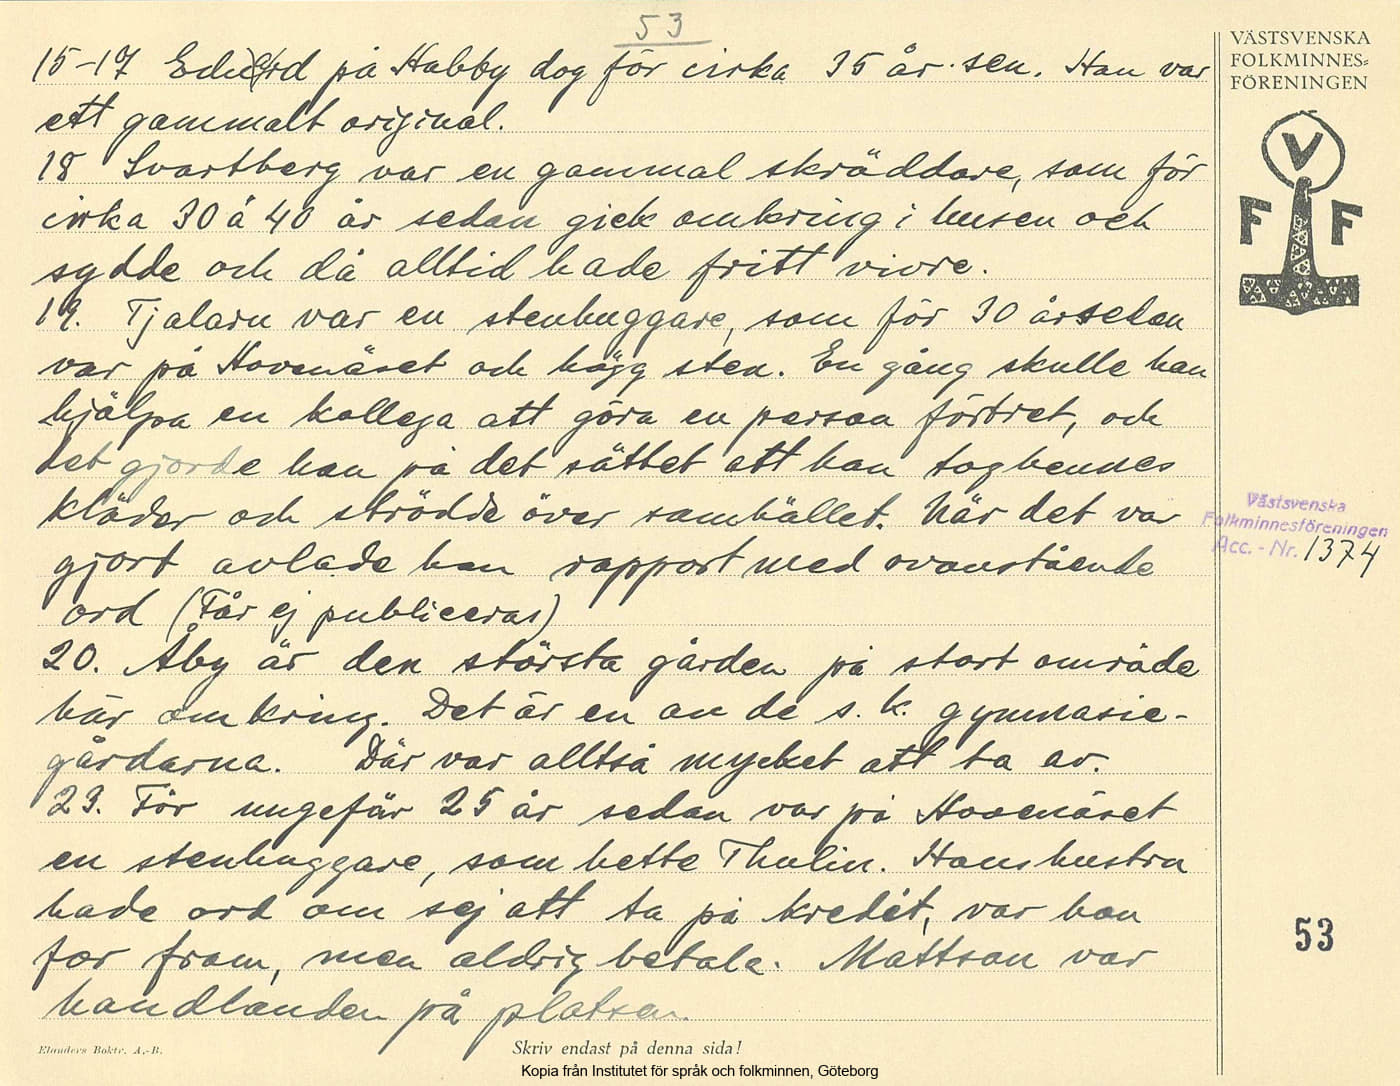 53
15-17 Edvard på Habby dog för cirka 35 år sen. Han var
ett gammalt original.
18 Svartberg var en gammal skräddare, som för
cirka 30 à 40 år sedan gick omkring i husen och
sydde och då alltid hade fritt vivre.
19. Tjalarn var en stenhuggare, som för 30 år sedan
var på Hovenäset och högg sten. En gång skulle han
hjälpa en kollega att göra en person förtret, och
det gjorde han på det sättet att han tog hennes
kläder och strödde över samhället. När det var
gjort avlade han rapport med ovanstående
ord (Får ej publiceras)
20. Åby är den största gården på stort område
här omkring. Det är en av de s.k. gymnasie-
gårdarna. Där var alltså mycket att ta av.
23. För ungefär 25 år sedan var på Hovenäset
en stenhuggare, som hette Thulin. Hans hustru
hade ord om sej att ta på kredit, var hon
for fram, men aldrig betala. Mattson var
handlanden på platsen.
VÄSTSVENSKA
FOLKMINNES=
FÖRENINGEN
V
F F
Västsvenska
Folkminnesföreningen
Acc. - Nr. 1374
53
Elanders Boktr. A.-B.
Skriv endast på denna sida!
Kopia från Institutet för språk och folkminnen, Göteborg